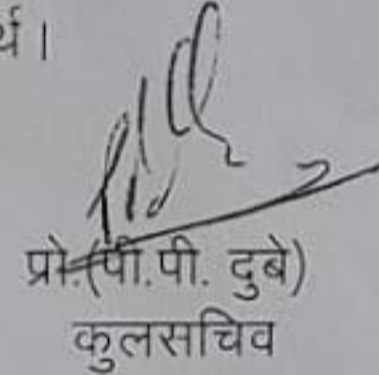 र्थ।
प्रो.(पी.पी. दुबे)
कुलसचिव